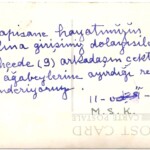 apisane hayatımızın
ına girişimiz dolayısile
hçede (9) arkadaşın çekti
ağabeylerine ayırdığı re
nderiyoruz.
11-
M.S.K.
POST CARD
CARTE POSTALE